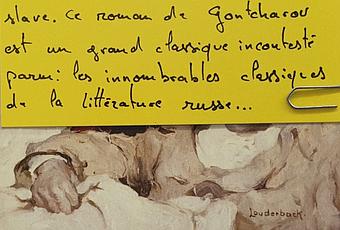 slave. Ce roman de Gontcharov
est un grand classique incontesté
parmi les innombrables classiques
de la littérature russe...
Louderback.